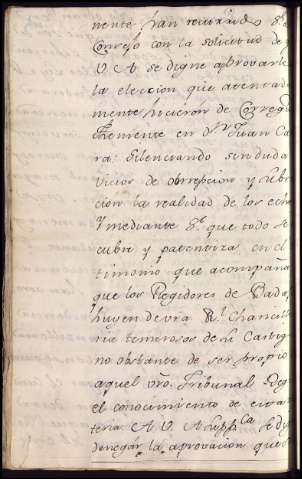 nente han recurrido
Consejo con la solicitud de
V A se digne aprovarle
la eleccion que atentada
mente hicieron de Corregi
Themente en Dn Juan Ca
ra: Silenciando sin duda
vicios de obrepcion y subre
cion la realidad de los
Y mediante qe que todo se
cubre y patentiza en el
timonio que acompaña
que los Regidores de Vada
huyen de vra Rl Chancill
ria temerosos de su Castigo
no obstante de ser propio
aquel vro Tribunal Reg
el conocimiento de
teria A V. A suppca se
denegar la aprovacion que